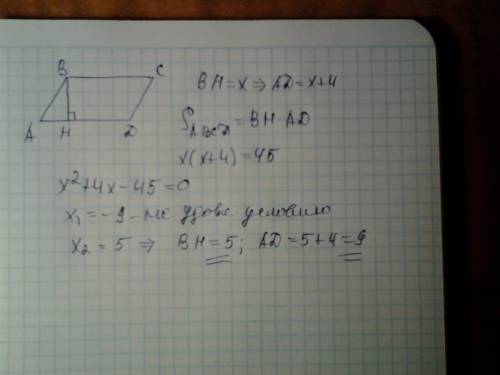 B C
A H D
BH = x ⇒ AD = x+4
S ABCD = BH · AD
x(x+4) = 45
x² + 4x - 45 = 0
x₁ = -9 - не удовл. условию
x₂ = 5 ⇒ BH = 5; AD = 5+4 = 9